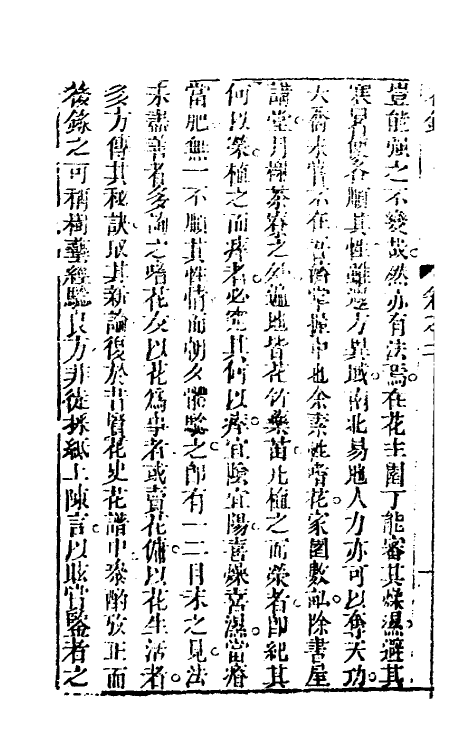 豈能強之不變哉然亦有法焉在花主園丁能審其燥濕避其
寒暑使各順其性雖遐方異域南北易地人力亦可以奪天功
夭喬未嘗不在吾儕掌握中也余素性嗜花家園數畝除書屋
講堂月榭茶寮之外遍地皆花竹藥苗凡植之而榮者卽紀其
何以榮植之而瘁者必究其何以瘁宜陰宜陽喜燥喜濕當瘠
當肥無一不順其性情而朝夕體驗之卽有一二目未之見法
未盡善者多詢之嗜花友以花為事者或賣花傭以花生活者
多方傳其秘訣取其新論復於昔賢花史花譜中叅酌攷正而
後錄之可稱樹藝經驗良方非徒採紙上陳言以眩賞鑒者之